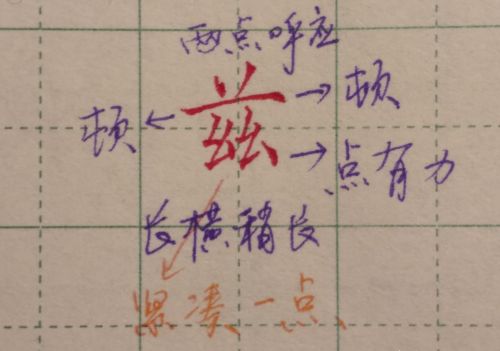 两点呼应
兹
顿
顿
点有力
长横稍长
紧凑一点